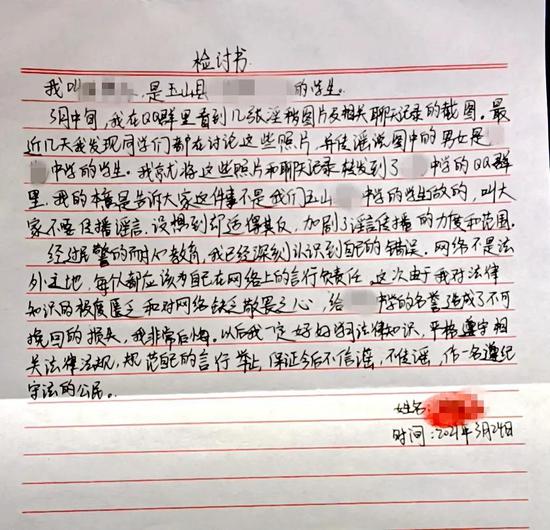 检讨书
我叫 ，是五山县 的学生。
3月中旬，我在QQ群里看到几张淫秽图片及相关聊天记录的截图。最
近几天我发现同学们都在讨论这些照片，并传谣说图中的男女是
中学的学生。我就将这些照片和聊天记录转发到了 中学的QQ群
里。我的本意是告诉大家这件事不是我们五山 中学的学生做的，叫大
家不要传播谣言。没想到却适得其反，加剧了谣言传播的力度和范围。
经过民警的耐心教育，我已经深刻认识到自己的错误。网络不是法
外之地，每个人都应该为自己在网络上的言行负责任。这次由于我对法律
知识的极度匮乏和对网络缺乏敬畏之心，给 中学的名誉造成了不可
挽回的损失，我非常后悔。以后我一定好好学习法律知识，严格遵守相
关法律法规，规范自己的言行举止，保证今后不信谣，不传谣，作一名遵纪
守法的公民。
姓名：
时间：2021年3月24日